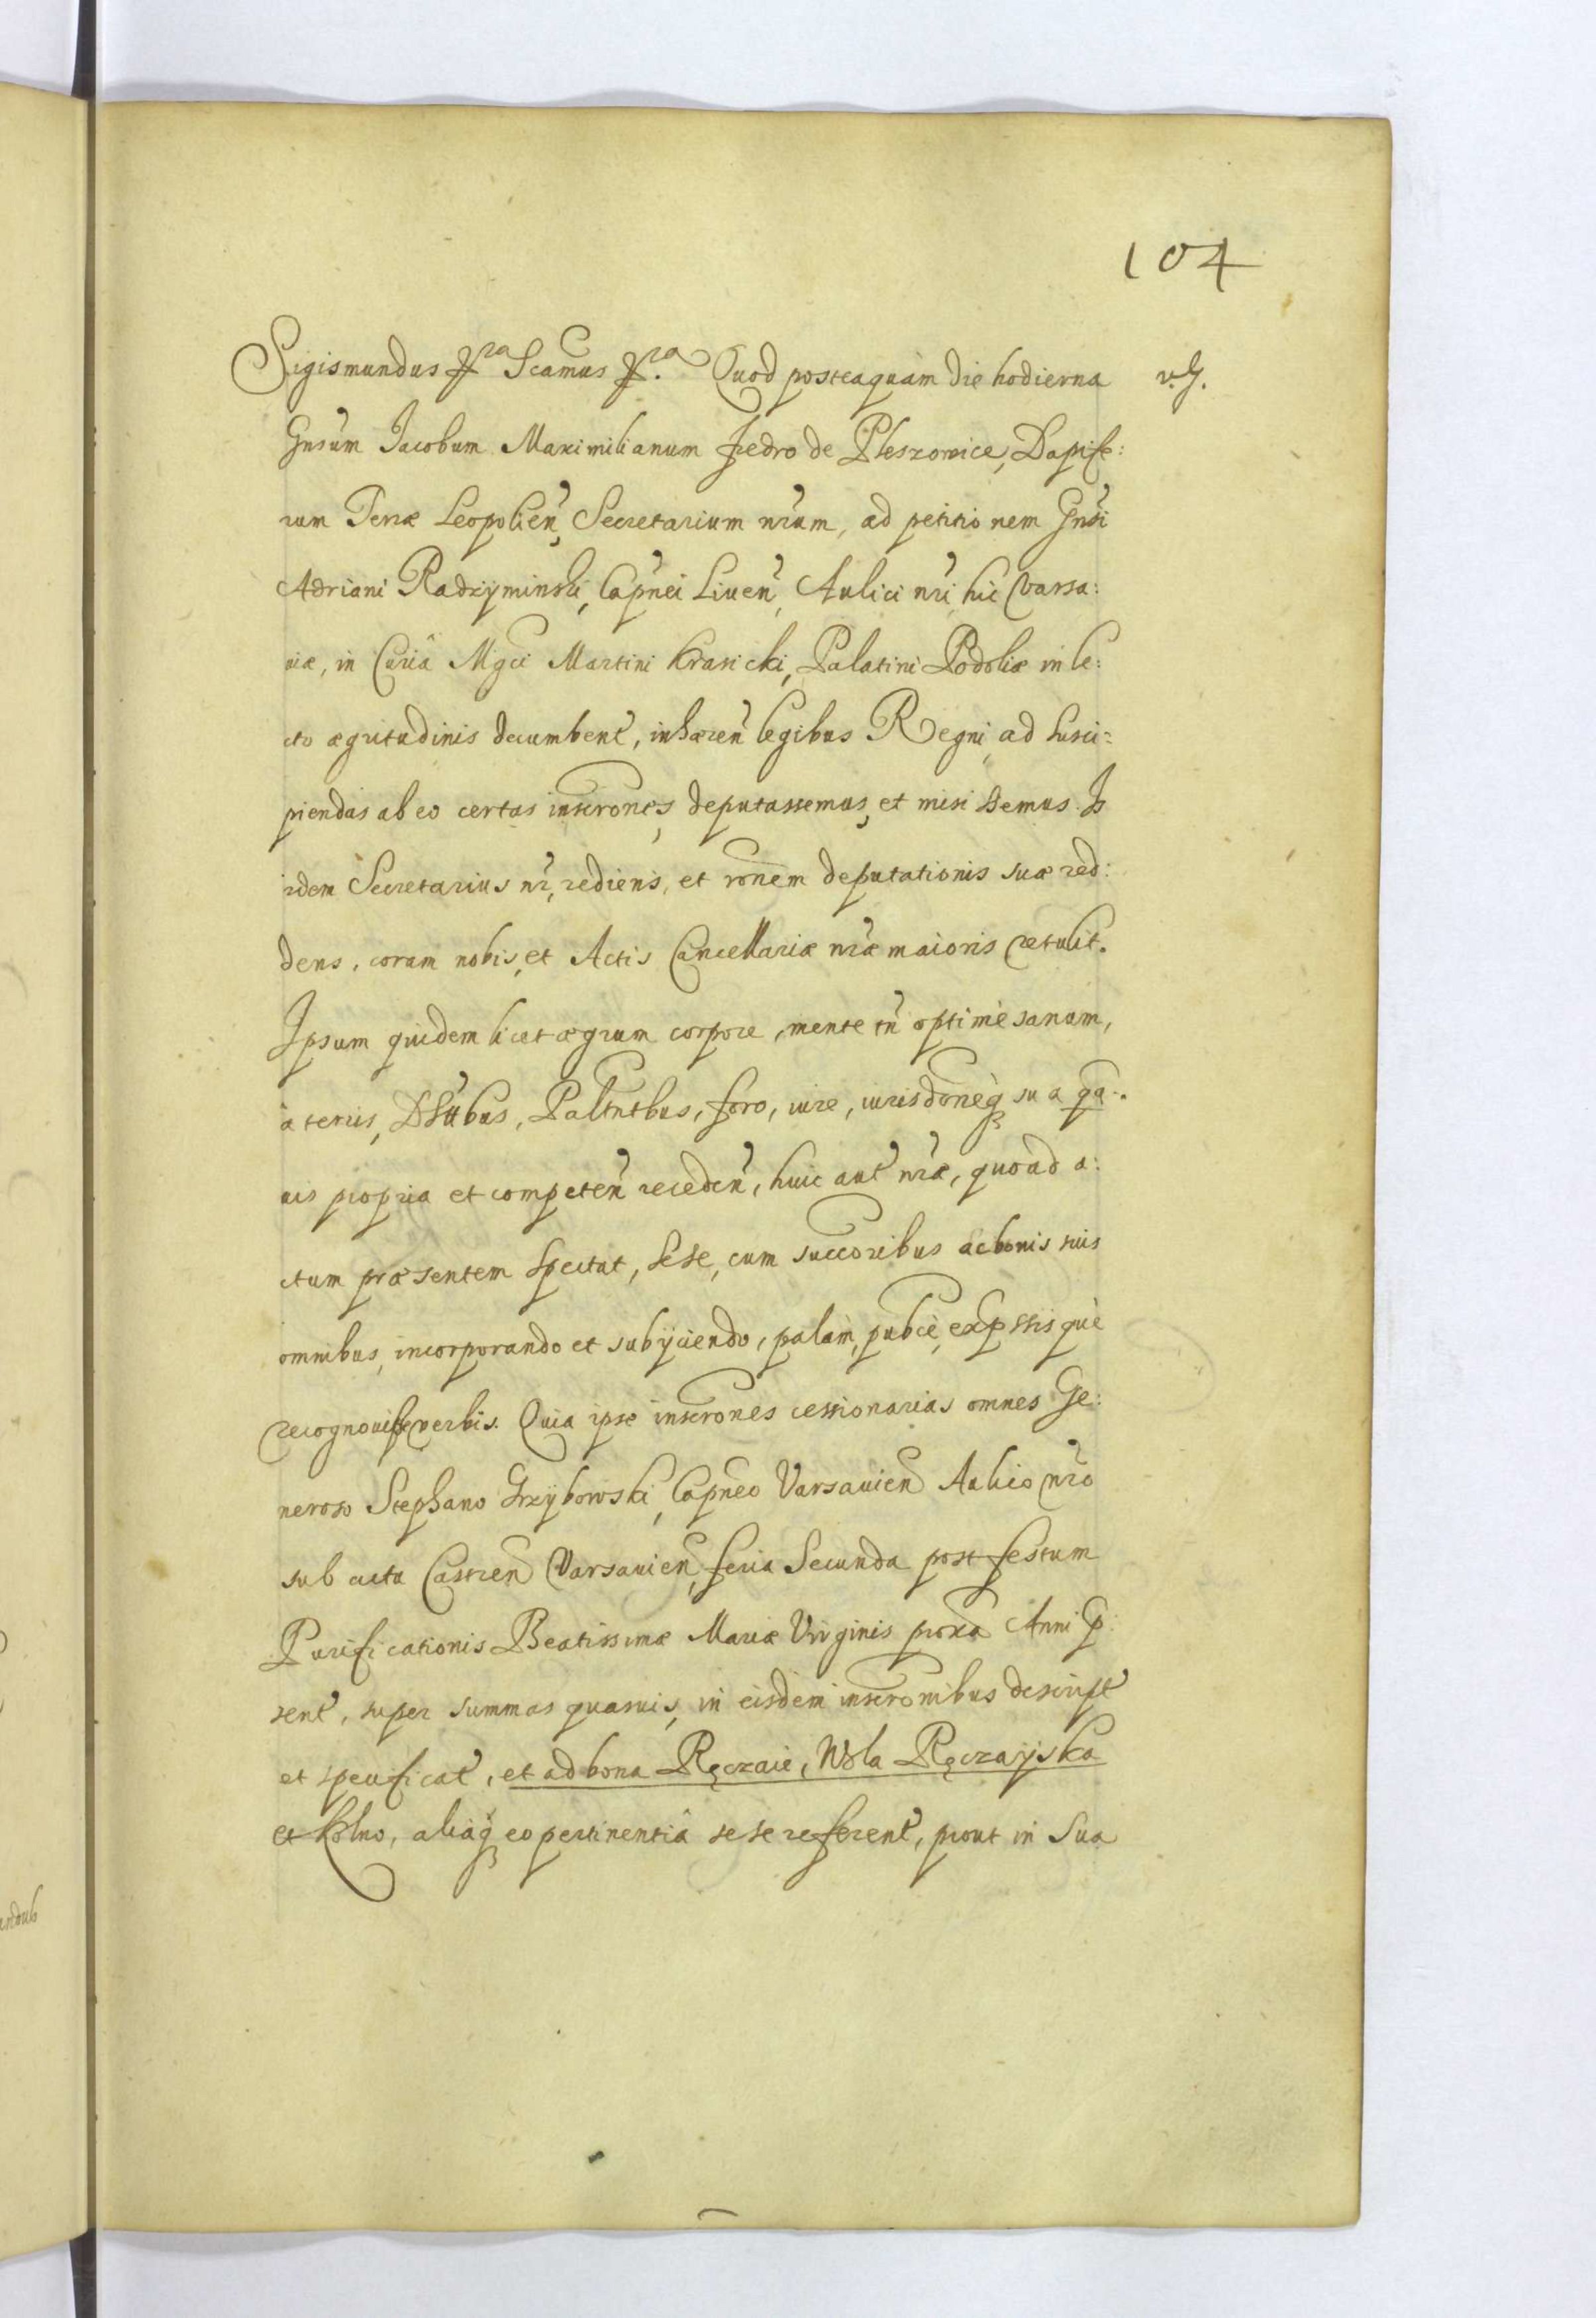 104
Sigismundus &ra Scamus &ra. Quod posteaquàm die hodierna v.g.
Gnsum Jacobum Maximilianum Fredro de Pleszowice, Dapife:
rum Terræ Leopolien, Secretarium nrum, ad petitionem Gnsi
Adriani Radzyminski, Capnei Liuen, Aulici nri hic Varsa:
uiæ, in Curiâ Mgci Martini Krasicki, Palatini Podoliæ in le:
cto ægritudinis decumbent, inhæren legibus Regni ad susci:
piendas ab eo certas inscrones, deputassemus, et misissemus. Is
idem Secretarius nr, rediens, et ronem deputationis suæ red:
dens, coram nobis, et Actis Cancellariæ nræ maioris retulit.
Ipsum quidem licet ægrum corpore, mente tn optimè sanum,
à terris, Paltntbus, foro, iure, iurisdoneq sua qa:
uis propria et competen receden, huic aut nræ, quoad a:
ctum præsentem spectat, sese, cum succoribus ac bonis suis
omnibus, incorporando et subijciendo, palàm, pubcè, expssisquè
recognouisse verbis. Quia ipse inscrones cessionarias omnes Ge:
neroso Stephano Grzybowski, Capneo Varsauien Aulico nro
sub acta Castren Varsauien, feria Secunda post festum
Purificationis Beatissimæ Mariæ Virginis proxa Anni p:
sent, super summas quasuis, in eisdem inscronibus descript
et specificat, et ad bona Ręczaie, Wola Ręczayska
et Kolno, aliaq eo pertinentia sese referent, prout in sua